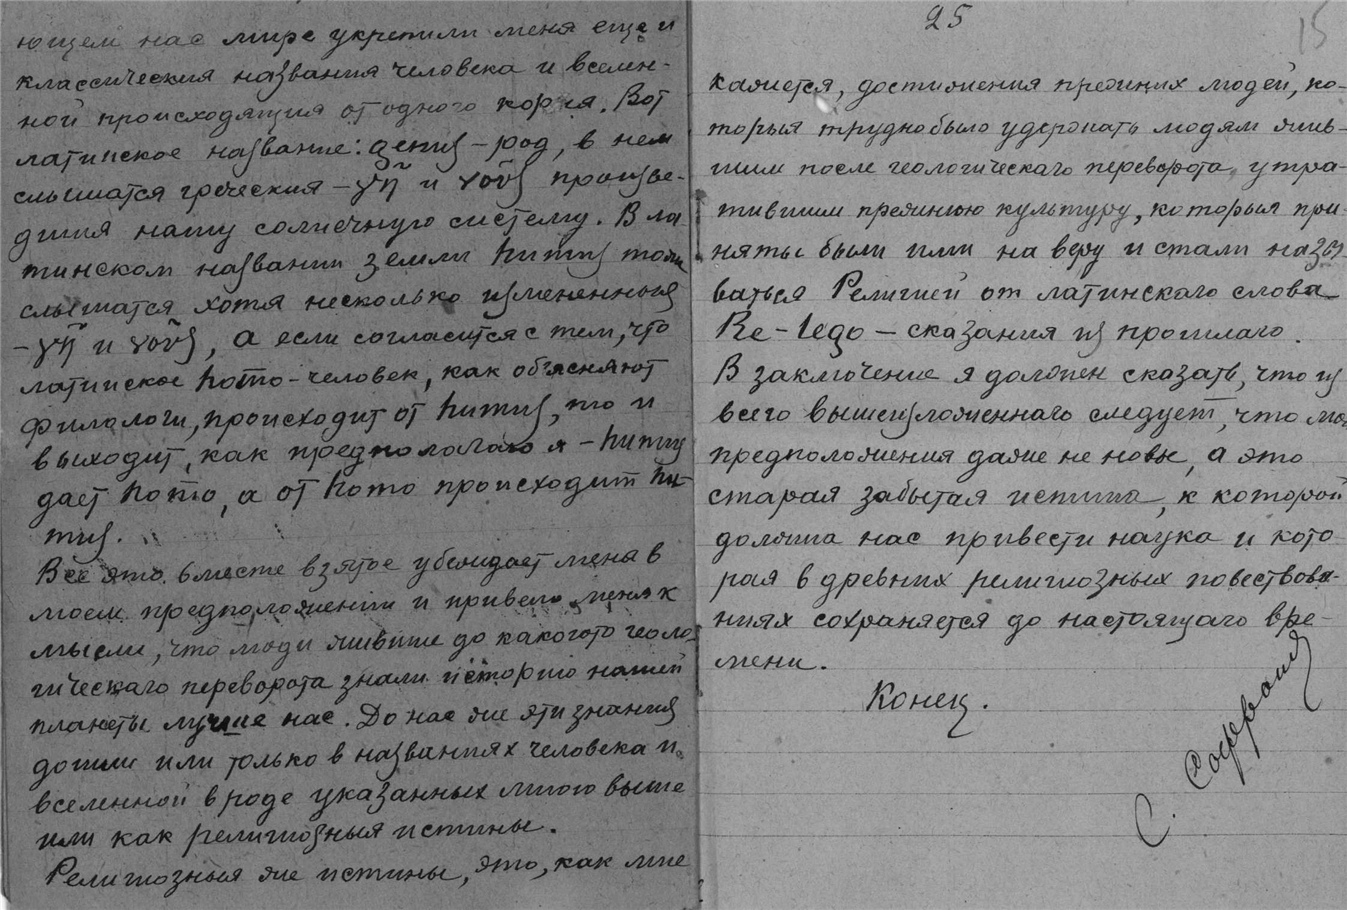 ющем нас мире укрепили меня еще и
классическия названия человека и вселен-
ной происходящия от одного корня. Вот
латинское название: genus – род, в нем
слышатся греческия – γῆ и νοῦς произве-
дшия нашу солнечную систему. В ла-
тинском названии земли humus тоже
слышатся хотя несколько измененныя
– γῆ и νοῦς, а если согласится с тем, что
латинское homo - человек, как об'ясняют
филологи, происходит от humus, то и
выходит, как предполагаю я – humus
дает homo, а от homo происходит hu-
mus.
Все это вместе взятое убеждает меня в
моем предположении и привело меня к
мысли, что люди жившие до какогото геоло-
гическаго переворота знали историю нашей
планеты лучше нас. До нас же эти знания
дошли или только в названиях человека и
вселенной в роде указанных много выше
или как религиозныя истины.
Религиозныя же истины, это, как мне
25
15
кажется, достижения прежних людей, ко-
торыя трудно было удержать людям жив-
шим после геологическаго переворота утра-
тившим прежнюю культуру, которыя при-
няты были ими на веру и стали назы-
ваться Религией от латинскаго слова
Re-lego – сказания из прошлаго.
В заключение я должен сказать, что из
всего вышеизложеннаго следует, что мои
предположения даже не новы, а это
старая забытая истина, к которой
должна нас привести наука и кото-
рая в древних религиозных повествова-
ниях сохраняется до настоящаго вре-
мени.
Конец.
С.